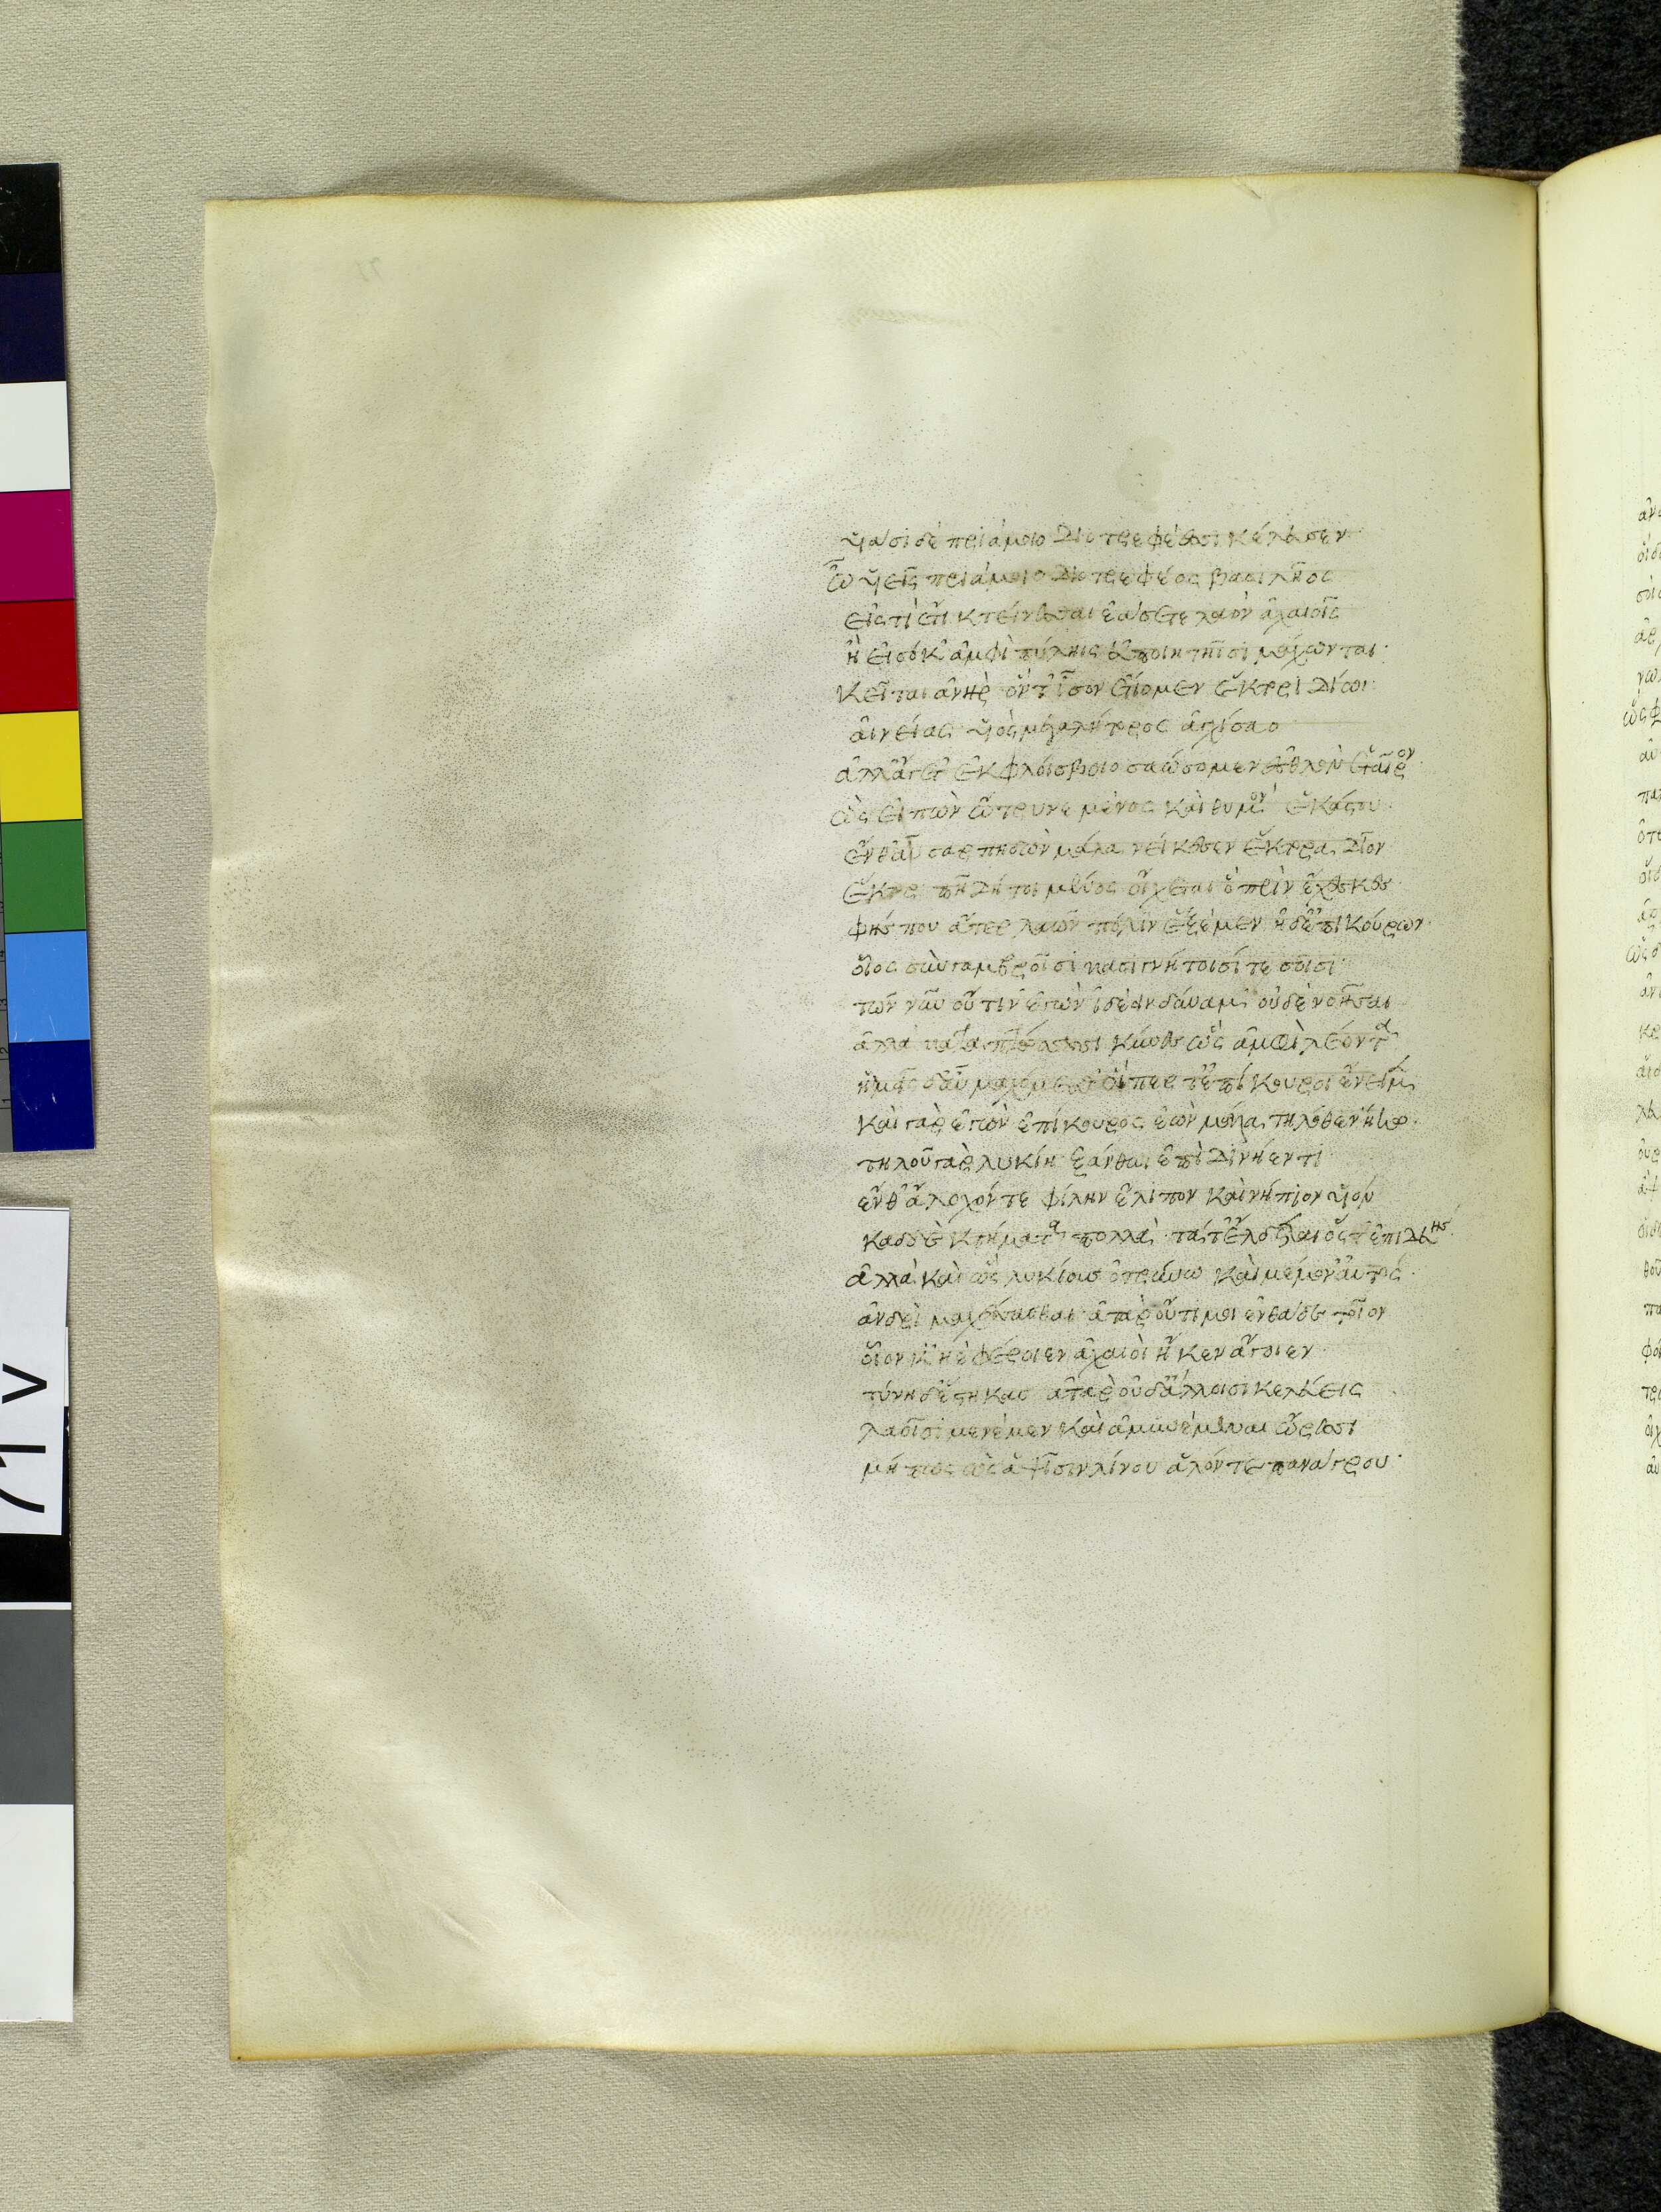 υἱάσι δὲ πριάμοιο διοτρεφέεσσι κέλευσεν
ὦ υἱεῖς πριάμοιο διοτρεφέος βασιλῆος
εἰς τί ἔτι κτείνεσθαι ἐάσετε λαὸν ἀχαιοῖς
ἢ εἰσόκ' ἀμφὶ πύλῃς εὐποιητῇσι μάχωνται·
κεῖται ἀνὴρ ὅντ' ἶσον ἐτίομεν ἕκτορι δίωι·
αἰνείας υἱὸς μεγαλήτορος ἀγχίσαο
ἀλλ' ἄγετ' ἐκ φλοίσβοιο σαώσομεν ἐσθλὸν ἑταῖρον·
ὣς εἰπὼν ὤτρυνε μένος καὶ θυμὸν ἑκάστου·
ἔνθ' αὖ σαρπηδὼν μάλα νείκεσεν ἕκτορα δῖον
ἕκτορ πῆ δή τοι μένος οἴχεται ὃ πρὶν ἔχεσκες
φῆς που ἄτερ λαῶν πόλιν ἑξέμεν ἠδ' ἐπικούρων·
οἶος σὺν γαμβροῖσι κασιγνήτοισί τε σοῖσι·
τῶν νῦν οὔτιν' ἐγὼν ἰδέειν δύναμ' οὐδὲ νοῆσαι
ἀλλὰ καταπτώσσουσι κύνες ὣς ἀμφὶ λέοντα
ἡμεῖς δ' αὖ μαχόμεσθ' οἵπερ τ' ἐπίκουροι ἔνειμεν
καὶ γὰρ ἐγὼν ἐπίκουρος ἐὼν μάλα τηλόθεν ἥκω·
τηλοῦ γὰρ λυκίη ξάνθωι ἐπὶ δινήεντι
ἔνθ' ἄλοχόν τε φίλην ἔλιπον καὶ νήπιον υἱόν
καδδὲ κτήματα πολλὰ τά τ' ἔλδεται ὅς τ' ἐπιδευής
ἀλλὰ καὶ ὣς λυκίους ὀτρύνω καὶ μέμον' αὐτὸς
ἀνδρὶ μαχήσασθαι· ἀτὰρ οὔτι μοι ἐνθάδε τοῖον
οἷόν κ' ἠὲ φέροιεν ἀχαιοὶ ἤ κεν ἄγοιεν
τύνη δ' ἕστηκας ἀτὰρ οὐδ' ἄλλοισι κελεύεις
λαοῖσι μενέμεν καὶ ἀμυνέμεναι ὤρεσσι
μή πως ὡς ἀψῖσι λίνου ἁλόντε πανάγρου·
71 v